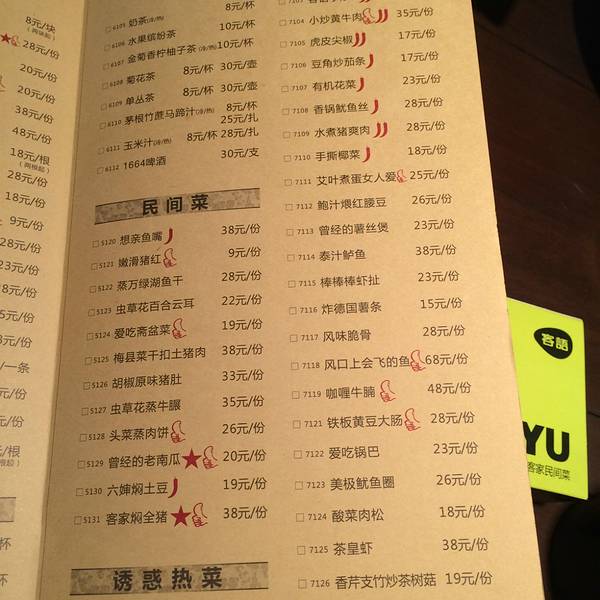 8元/块
(两块起)
28元/份
20元/份
20元/份
38元/份
48元/份
18元/根
(两根起)
28元/份
18元/份
9元/份
28元/份
23元/份
/一条
元/份
元/份
元/根
6105 奶茶(冷/热) 8元/杯
6106 水果缤纷茶 10元/杯
6107 金菊香柠柚子茶(冷/热) 10元/杯
6108 菊花茶 8元/杯 30元/壶
6109 单丛茶 8元/杯 30元/壶
6110 茅根竹蔗马蹄汁(冷/热) 8元/杯
25元/扎
6111 玉米汁(冷/热) 8元/杯 28元/扎
6112 1664啤酒 30元/支
民间菜
5120 想亲鱼嘴 38元/份
5121 嫩滑猪红 9元/份
5122 蒸万绿湖鱼干 28元/份
5123 虫草花百合云耳 22元/份
5124 爱吃斋盆菜 19元/份
5125 梅县菜干扣土猪肉 38元/份
5126 胡椒原味猪肚 33元/份
5127 虫草花蒸牛𦟌 35元/份
5128 头菜蒸肉饼 26元/份
5129 曾经的老南瓜 20元/份
5130 六婶焖土豆 19元/份
5131 客家焖全猪 38元/份
诱惑热菜
7104 小炒黄牛肉 35元/份
7105 虎皮尖椒 17元/份
7106 豆角炒茄条 17元/份
7107 有机花菜 23元/份
7108 香锅鱿鱼丝 28元/份
7109 水煮猪爽肉 28元/份
7110 手撕椰菜 18元/份
7111 艾叶煮蛋女人爱 25元/份
7112 鲍汁煨红腰豆 26元/份
7113 曾经的薯丝煲 23元/份
7114 泰汁鲈鱼 38元/份
7115 棒棒棒虾扯 23元/份
7116 炸德国薯条 15元/份
7117 风味脆骨 28元/份
7118 风口上会飞的鱼 68元/份
7119 咖喱牛腩 48元/份
7121 铁板黄豆大肠 28元/份
7122 爱吃锅巴 23元/份
7123 美极鱿鱼圈 26元/份
7124 酸菜肉松 18元/份
7125 茶皇虾 38元/份
7126 香芹支竹炒茶树菇 19元/份
客語
YU
客家民间菜